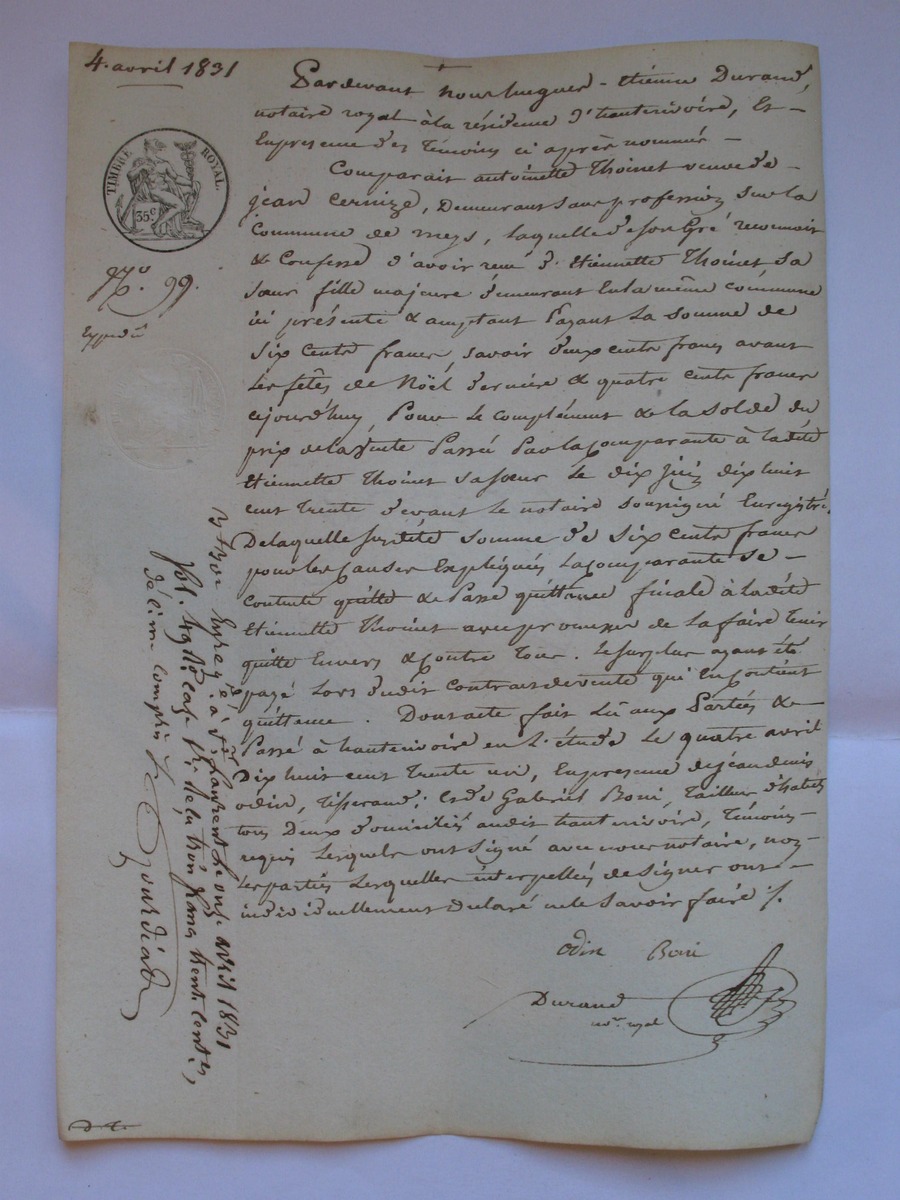 4. avril 1831
TIMBRE ROYAL.
35c
No. 99.
Expédié
Pardevant nous hugues-étienne Durand,
notaire royal à la résidence d'hauterivoire, Et
En presence des témoins ci après nommés
Comparait antoinette Thoinet veuve de
jean Cernize, Demeurant sans profession sur la
Commune de meys, laquelle de son Gré reconnoit
& Confesse d'avoir reçu d'Etiennette Thoinet sa
sœur fille majeure demeurant En la même commune
ici présente & acceptant Payant la somme de
six cents francs, savoir deux cents francs avant
les fêtes de Noël dernière & quatre cents francs
cejourd'huy, Pour le complément & la solde du
prix de la vente Passé Par la comparante à ladite
Etiennette Thoinet sa sœur le dix juin dix huit
cent trente devant le notaire soussigné Enregistré.
De laquelle susdite somme de six cents francs
pour les causes Expliquées la comparante se
contente quitte & Passe quittance finale à ladite
Etiennette Thoinet avec promesse de la faire tenir
quitte Envers & contre tous. le surplus ayant été
payé lors dudit contrat de vente qui En contient
quittance. Dont acte fait lu aux Parties &
Passé à hauterivoire en l'étude le quatre avril
Dix huit cent trente un, En presence de jean denis
odin, tisserand; et de Gabriel Boni, tailleur d'habits
tous Deux domiciliés audit hauterivoire, témoins
requis lesquels ont signé avec nous notaire, non
les parties lesquelles interpellées de signer ont
individuellement Déclaré ne le savoir faire ./.
odin Boni
Durand
nore. royal
à St Laurent le onze avril 1831
fol. 49 Ro case
trois francs trente cents,
décime compris